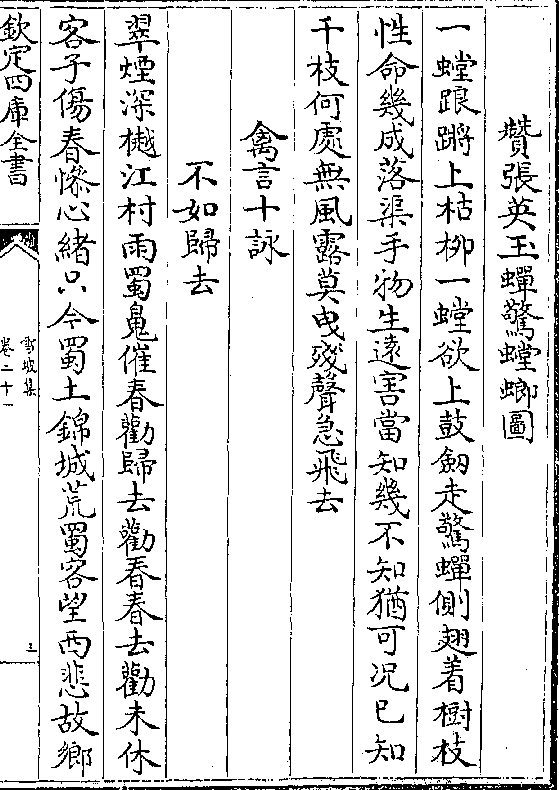 贊張英玉蟬驚螳螂圖
一螳踉蹡上枯柳一螳欲上鼓劒走驚蟬側翅着樹枝
性命幾成落渠手物生逺害當知幾不知猶可况已知
千枝何處無風露莫曵殘聲急飛去
禽言十詠
不如歸去
翠煙深樾江村雨蜀鬼催春勸歸去勸春春去勸未休
客子傷春慘心緒只今蜀土錦城荒蜀客望西悲故鄉
欽定四庫全書
雪坡集
卷二十一
三